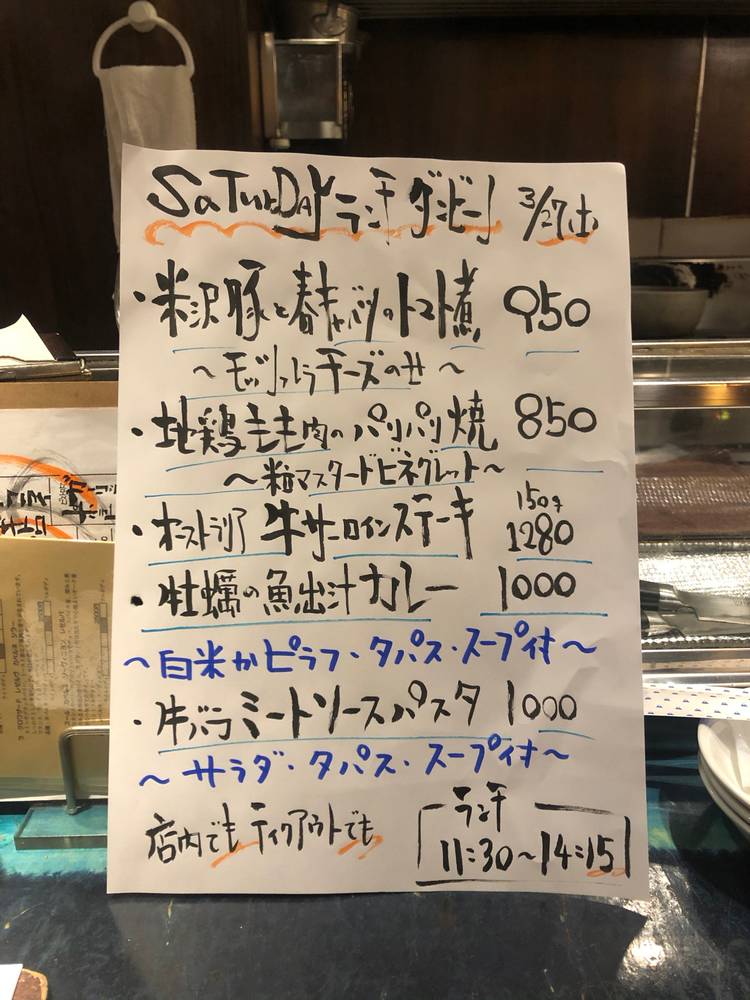 SaTurDAy ランチ ダンビーノ 3/27(土)
・米沢豚と春キャベツのトマト煮 950
～モッツァレラチーズのせ～
・地鶏もも肉のパリパリ焼 850
～粒マスタードビネグレット～
150g
・オーストラリア 牛サーロインステーキ 1280
・牡蠣の魚出汁カレー 1000
～白米かピラフ・タパス・スープ付～
・牛バラミートソースパスタ 1000
～サラダ・タパス・スープ付～
店内でもテイクアウトでも
ランチ
11:30～14:15